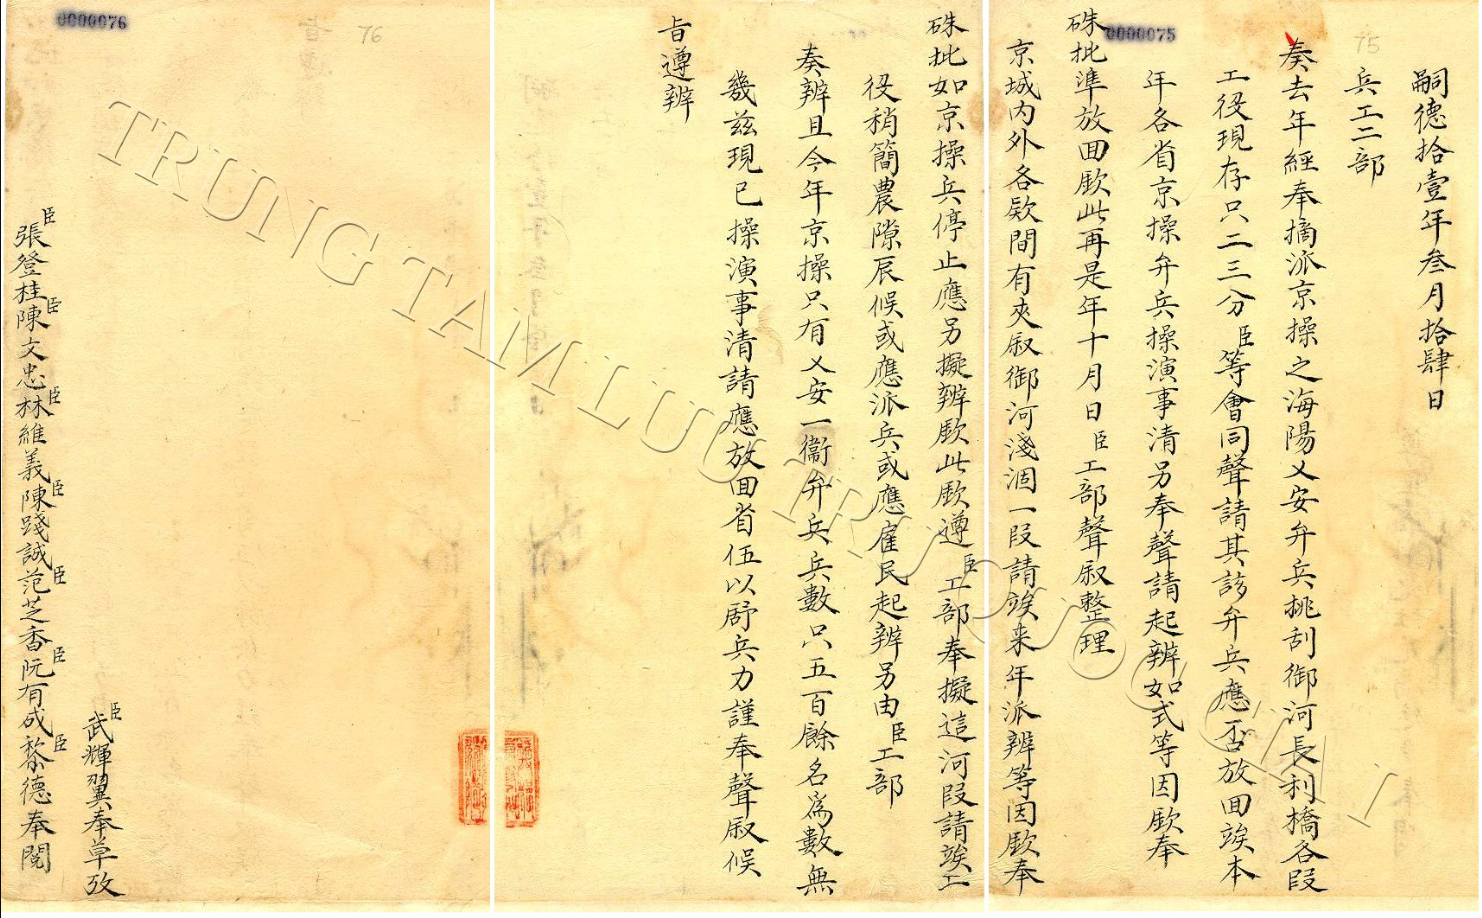 嗣德拾壹年叁月拾肆日
兵工二部
奏去年經奉摘派京操之海陽乂安弁兵挑刮御河長利橋各段
工役現存只二三分臣等會同聲請其該弁兵應否放回竢本
年各省京操弁兵操演事清另奉聲請起辨如式等因欽奉
硃批準放回欽此再是年十月日臣工部聲叙整理
京城内外各欵間有夾叙御河淺涸一段請竢来年派辨等因欽奉
硃批如京操兵停止應另擬辨欽此欽遵臣工部奉擬這河段請竢工
役稍簡農隙辰候或應派兵或應雇民起辨另由臣工部
奏辨且今年京操只有乂安一衞弁兵兵數只五百餘名為數無
幾茲現已操演事清請應放回省伍以舒兵力謹奉聲叙候
旨遵辨
臣武輝翼奉草攷
臣張登桂臣陳文忠臣林維義臣陳踐誠臣范芝香臣阮有成臣黎德奉閱
0000075
75
0000076
76
TRUNG TAM LUU TRU QUOC GIA I